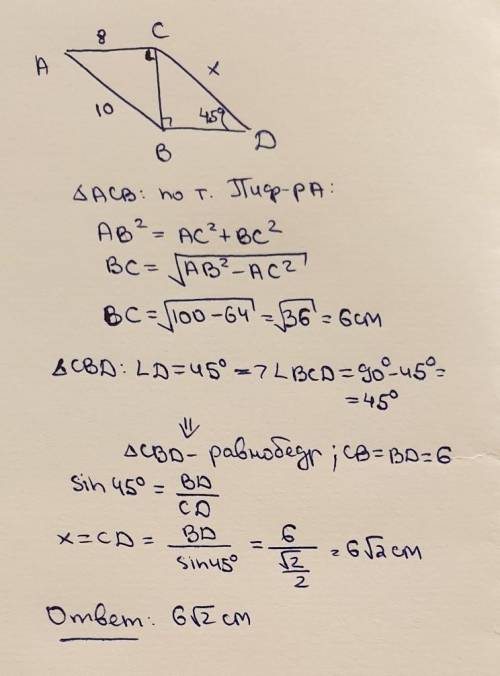 C
8
A
x
10
45°
B
D
△ACB: по т. Пиф-рА:
AB² = AC² + BC²
BC = √AB² - AC²
BC = √100 - 64 = √36 = 6см
△CBD: ∠D = 45° => ∠BCD = 90° - 45° =
= 45°
⇓
△CBD - равнобедр ; CB = BD = 6
sin 45° = BD/CD
x = CD = BD/sin45° = 6/(√2/2) = 6√2 см
Ответ: 6√2 см